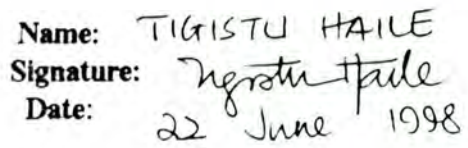 Name: TIGISTU HAILE
Signature: Tigistu Haile
Date: 22 June 1998